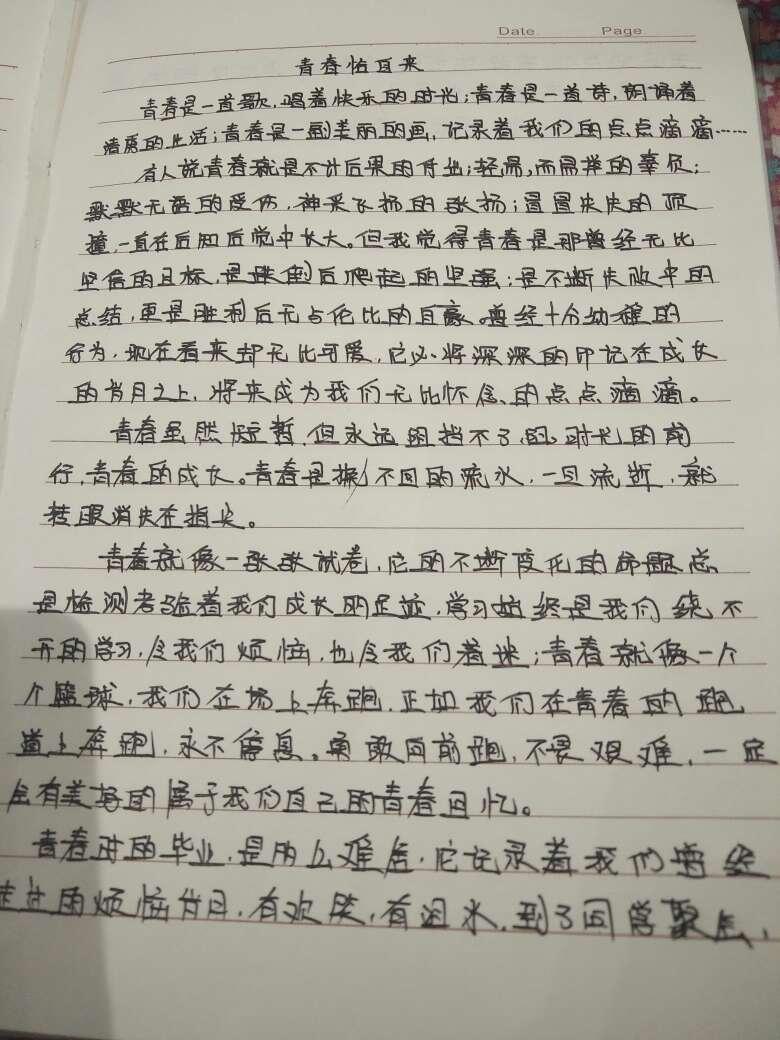 Date Page
青春恰自来
青春是一首歌,唱着快乐的时光;青春是一首诗,朗诵着
清质的生活;青春是一画美丽的画,记录着我们的点点滴滴……
有人说青春就是不计后果的付出;轻易,而易举的辜负;
默默无语的受伤,神采飞扬的张扬;冒冒失失的顶
撞,一直在后知后觉中长大。但我觉得青春是那曾经无比
坚信的目标,是跌倒后爬起的坚强;是不断失败中的
总结,更是胜利后无与伦比的自豪。曾经十分幼稚的
行为,现在看来却无比可爱,它必将深深的印记在成长
的岁月之上,将来成为我们无比怀念的点点滴滴。
青春虽然短暂,但永远阻挡不了时光的前
行,青春的成长。青春是换不回的流水,一旦流逝,就
转眼消失在指尖。
青春就像一张张试卷,它的不断变化的命题总
是检测考验着我们成长的足迹,学习始终是我们绕不
开的学习,令我们烦恼,也令我们着迷;青春就像一个
个篮球,我们在场上奔跑,正如我们在青春的跑
道上奔跑,永不停息。勇敢向前跑,不畏艰难,一定
会有美好的属于我们自己的青春回忆。
青春时的毕业,是那么难舍,它记录着我们曾经
走过的烦恼岁月,有欢笑,有泪水,到了同学聚会,